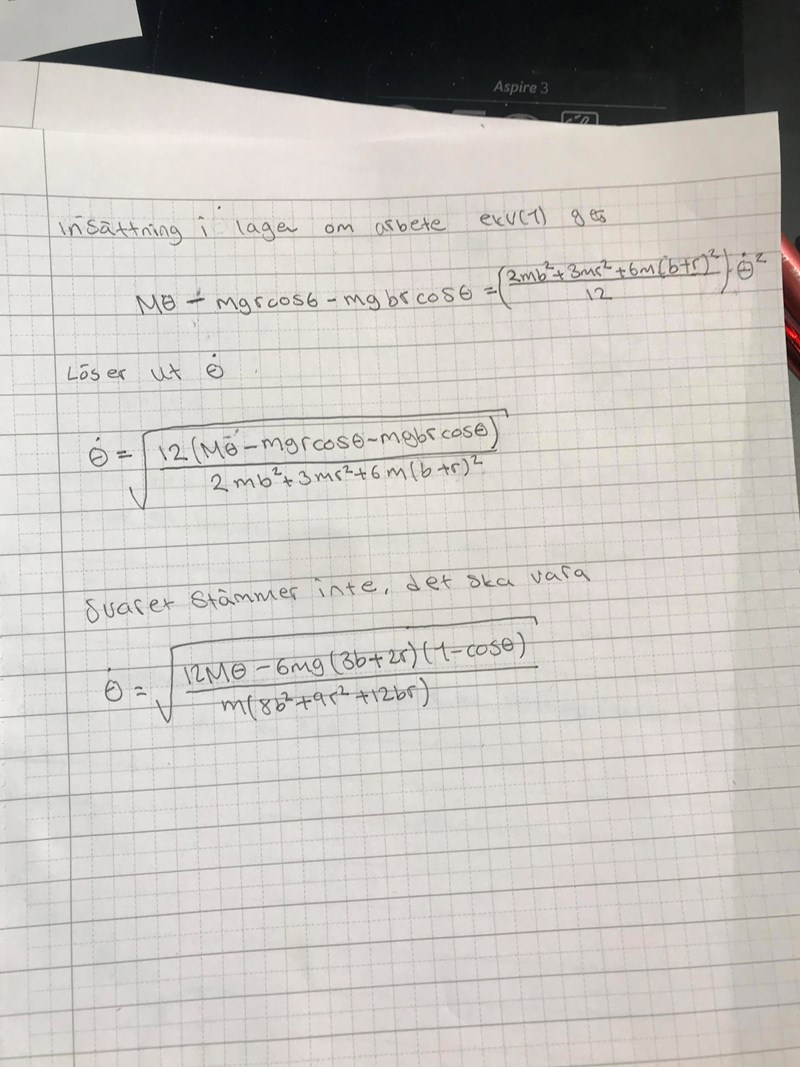 Aspire 3
insättning i lagen om arbete ekv(1) ges
Mθ - mgrcosθ - mgbrcosθ = (2mb²+3mr²+6m(b+r)²/12)·θ̇²
Löser ut θ̇
θ̇ = √(12(Mθ-mgrcosθ-mgbrcosθ)/2mb²+3mr²+6m(b+r)²)
Svaret stämmer inte, det ska vara
θ̇ = √(12Mθ-6mg(3b+2r)(1-cosθ)/m(8b²+9r²+12br))